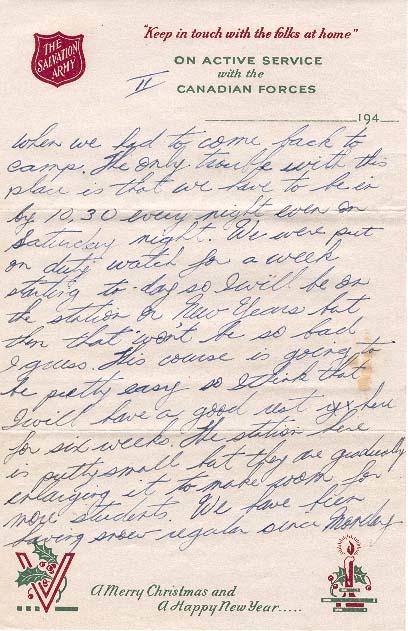 THE
SALVATION
ARMY
"Keep in touch with the folks at home"
ON ACTIVE SERVICE
with the
CANADIAN FORCES
II
194
when we had to come back to
camp. The only trouble with this
place is that we have to be in
by 10,30 every night even on
Saturday night. We were put
on duty watch for a week
starting to-day so I will be on
the station on New Years but
then that won't be so bad
I guess. This course is going to
be pretty easy so I think that
I will have a good rest xxx here
for six weeks. The station here
is pretty small but they are gradually
enlarging it to make room for
more students. We have bien
having snow regular since Monday
A Merry Christmas and
A Happy New Year.....